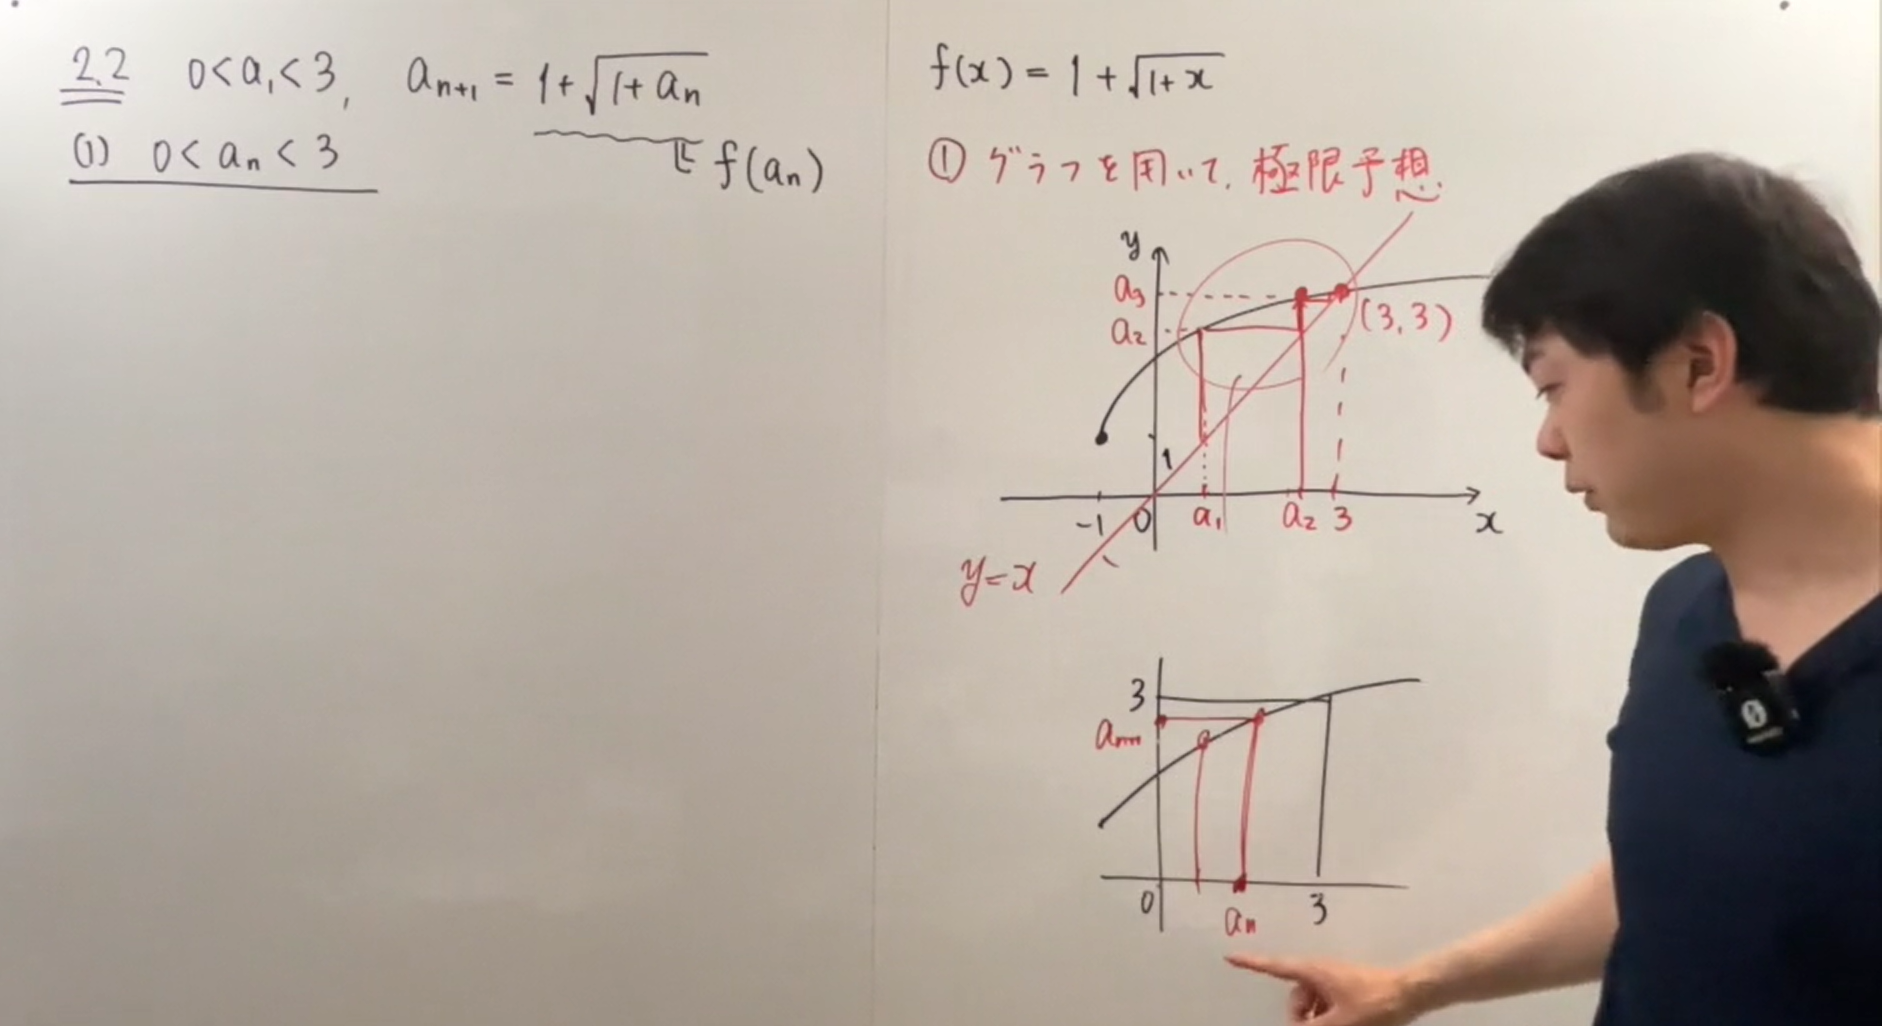 2.2 0<a₁<3, aₙ₊₁ = 1+√(1+aₙ)
(1) 0<aₙ<3
f(aₙ)
f(x) = 1+√(1+x)
① グラフを用いて、極限予想
y
a₃
(3,3)
a₂
1
-1 0 a₁ a₂ 3 x
y=x
3
aₙ₊₁
0 aₙ 3